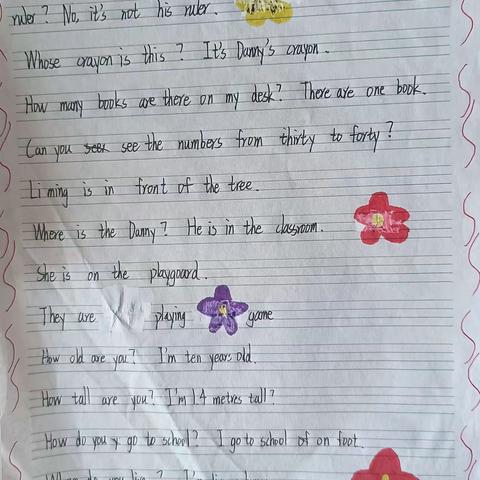 ruler? No, it's not his ruler.
Whose crayon is this? It's Danny's crayon.
How many books are there on my desk? There are one book.
Can you seek see the numbers from thirty to forty?
Li ming is in front of the tree.
Where is the Danny? He is in the classroom.
She is on the playgoard.
They are playing game
How old are you? I'm ten years old.
How tall are you? I'm 1.4 metres tall?
How do you y go to school? I go to school of on foot.